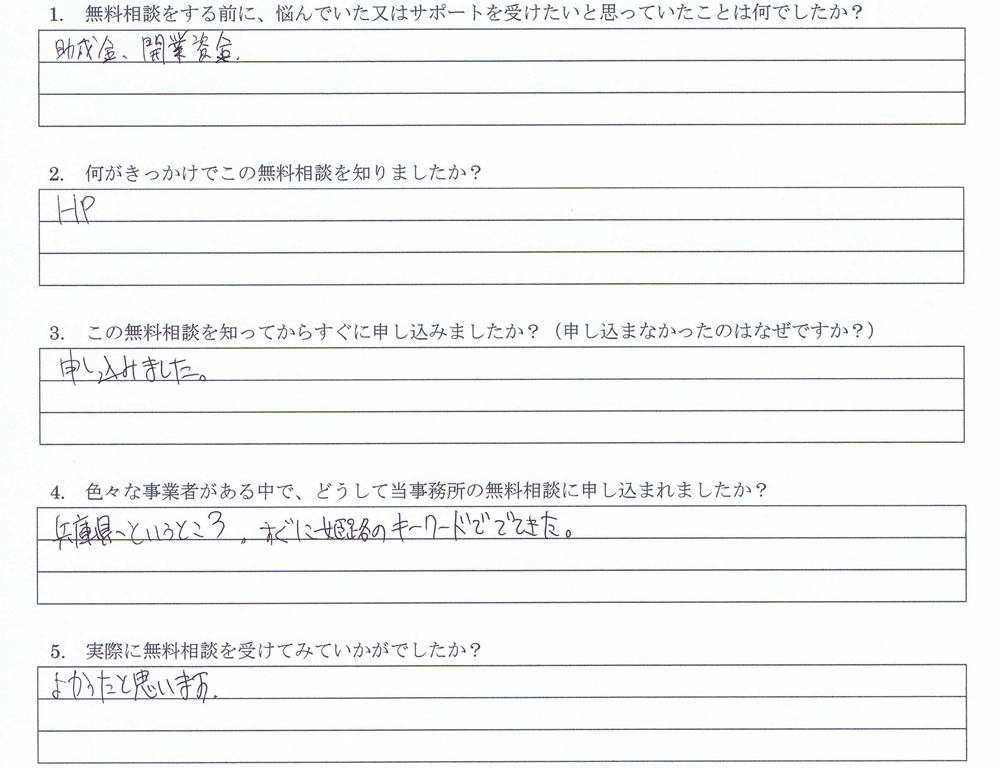 1. 無料相談をする前に、悩んでいた又はサポートを受けたいと思っていたことは何でしたか？
助成金、開業資金.
2. 何がきっかけでこの無料相談を知りましたか？
HP
3. この無料相談を知ってからすぐに申し込みましたか？（申し込まなかったのはなぜですか？）
申し込みました。
4. 色々な事業者がある中で、どうして当事務所の無料相談に申し込まれましたか？
兵庫県へというところ 。すぐに姫路のキーワードででてきた。
5. 実際に無料相談を受けてみていかがでしたか？
よかったと思います.